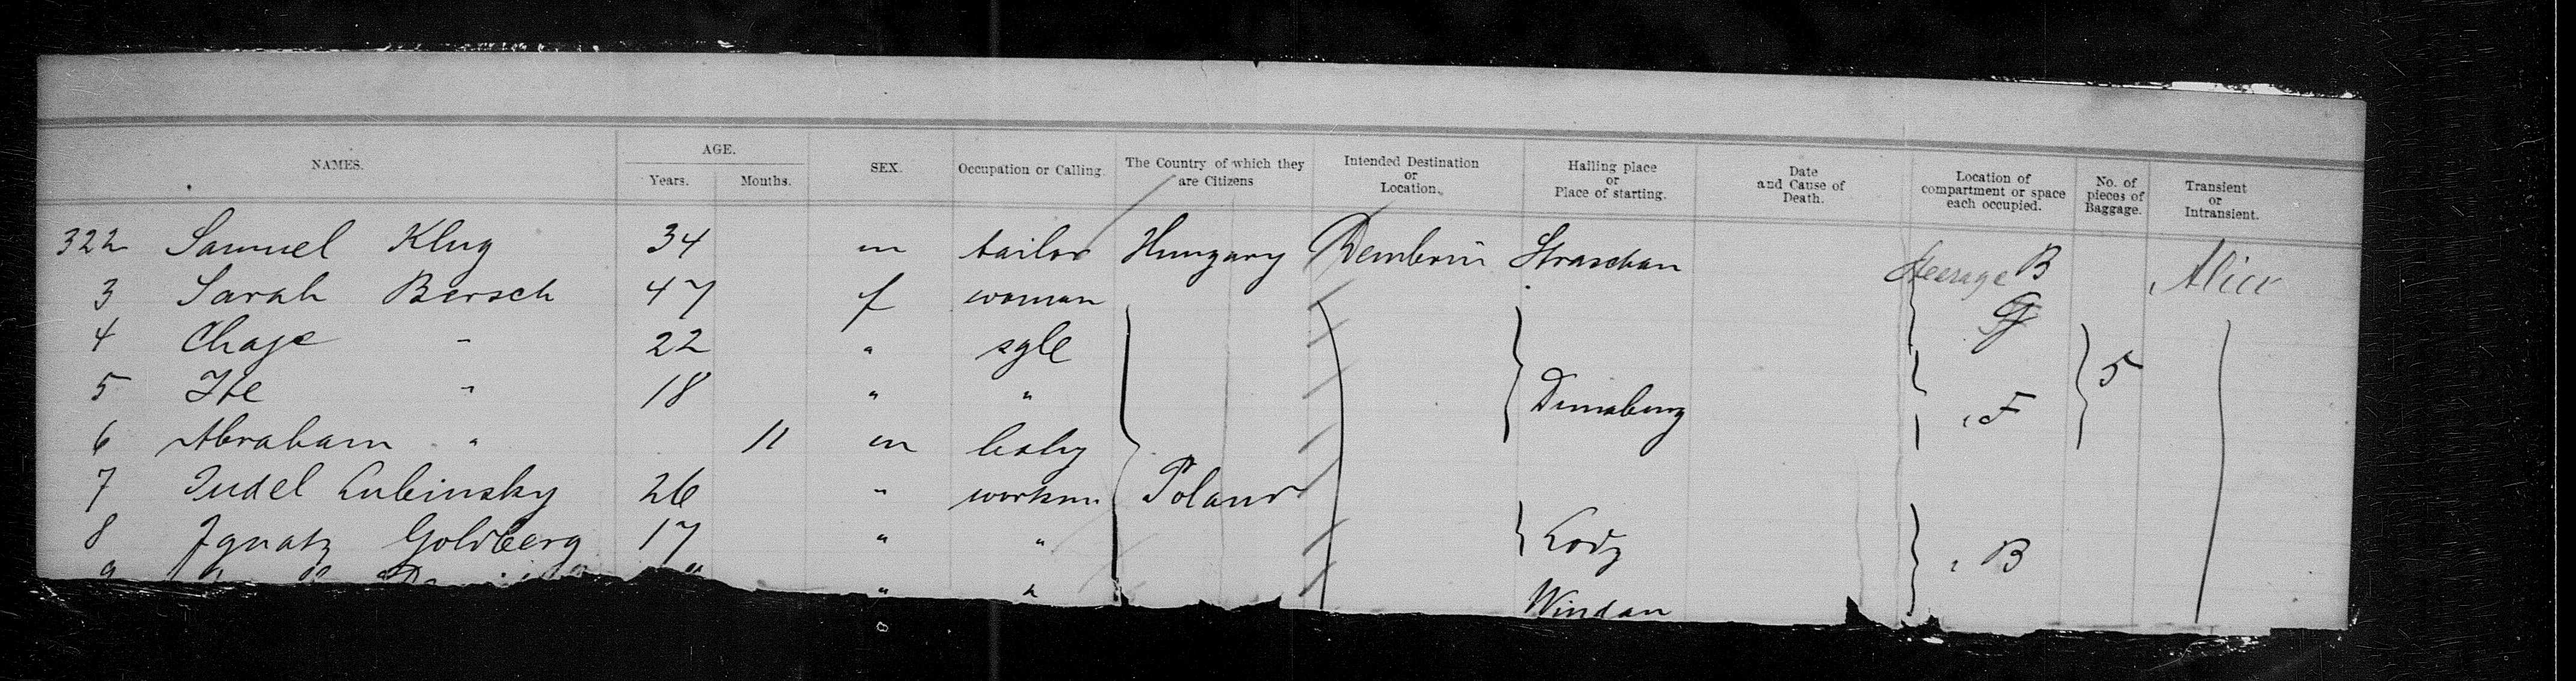 NAMES. AGE. Years. Months. SEX. Occupation or Calling. The Country of which they are Citizens Intended Destination or Location. Hailing place or Place of starting. Date and Cause of Death. Location of compartment or space each occupied. No. of pieces of Baggage. Transient or Intransient.
322 Samuel Klug 34 m tailor Hungary Straschan Steerage B
3 Sarah Bersch 47 f woman
4 Chaje " 22 " sgle
5 Ite " 18 " " Dunaburg " F 5
6 Abraham " 11 m baby
7 Judel Lubinsky 26 " workm. Poland
8 Ignatz Goldberg 17 " " Lodz " B
9 " " Windau